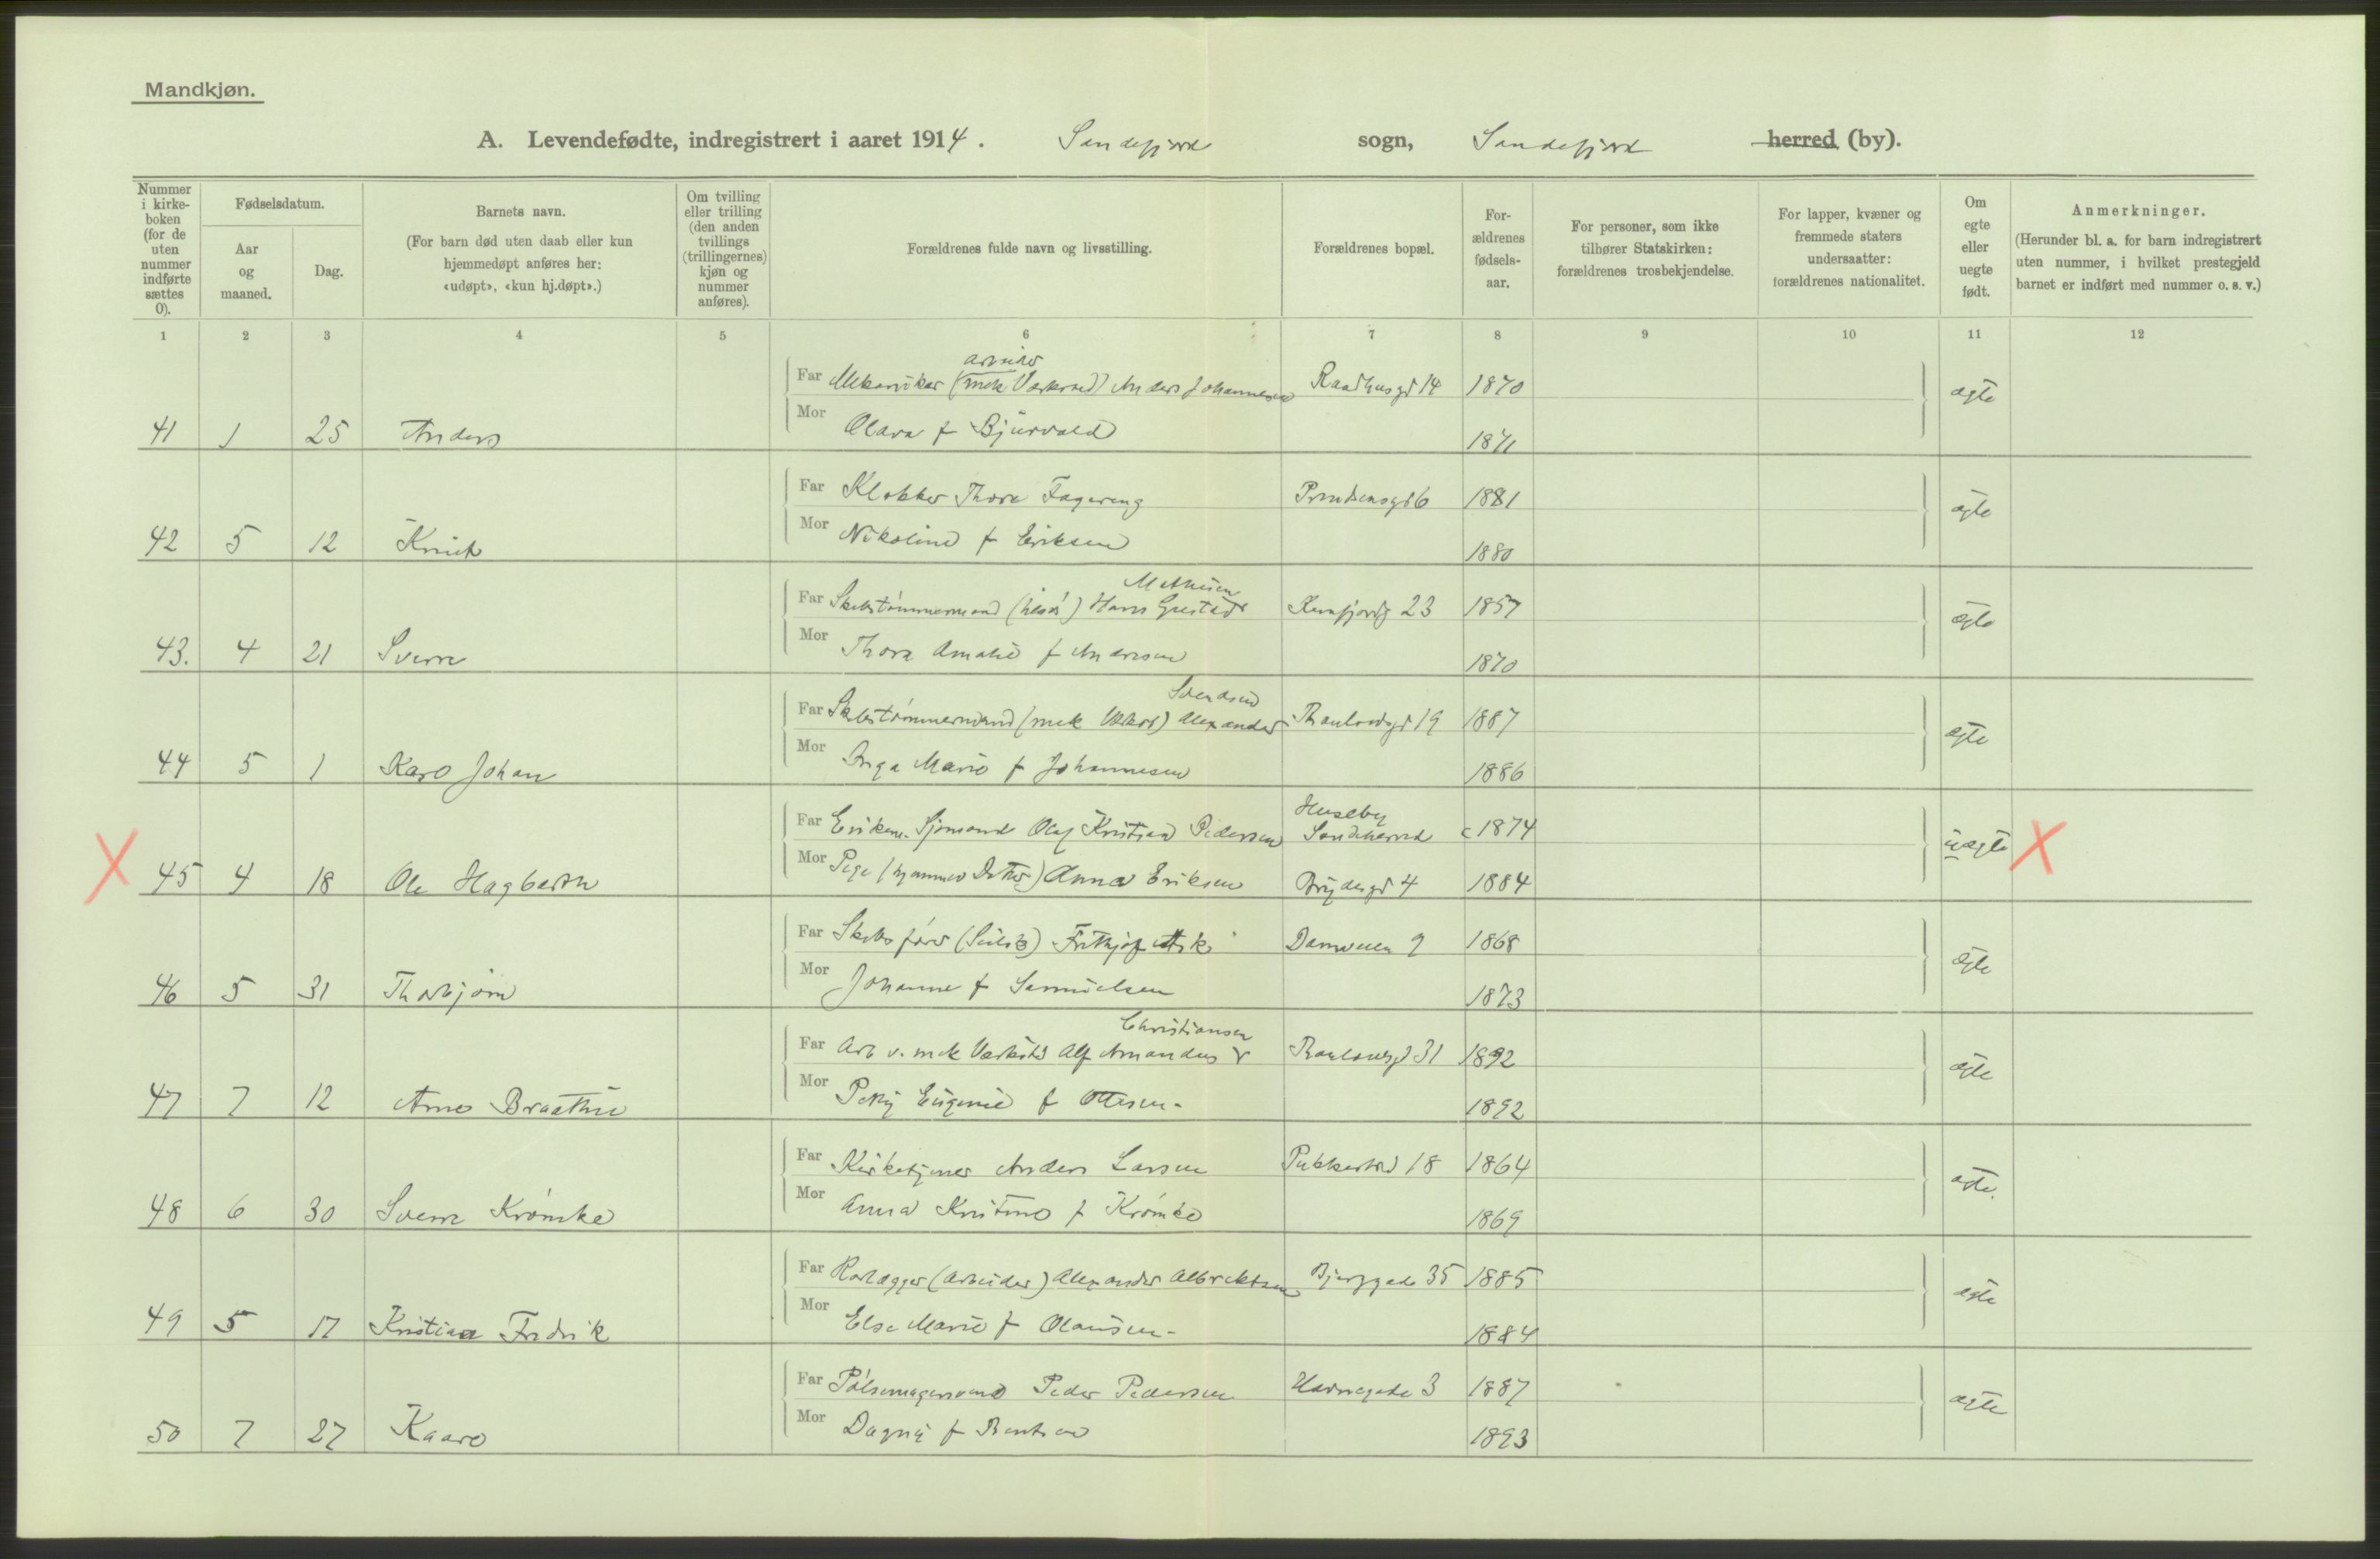 Mandkjøn.
A. Levendefødte, indregistrert i aaret 1914. Sandefjord sogn, Sandefjord herred (by).
Nummer i kirke-boken (for de uten nummer indførte sættes 0).
Fødselsdatum.
Aar og maaned.
Dag.
Barnets navn.
(For barn død uten daab eller kun hjemmedøpt anføres her: «udøpt», «kun hj.døpt».)
Om tvilling eller trilling (den anden tvillings (trillingernes) kjøn og nummer anføres).
Forældrenes fulde navn og livsstilling.
Forældrenes bopæl.
For-ældrenes fødsels-aar.
For personer, som ikke tilhører Statskirken: forældrenes trosbekjendelse.
For lapper, kvæner og fremmede staters undersaatter: forældrenes nationalitet.
Om egte eller uegte født.
Anmerkninger.
(Herunder bl. a. for barn indregistrert uten nummer, i hvilket prestegjeld barnet er indført med nummer o. s. v.)
1 2 3 4 5 6 7 8 9 10 11 12
arbeider
Far Mekaniker (mek Værksted) Anders Johannesen Raadhusgd 14 1870 ægte
41 1 25 Anders Mor Olava f Bjurvald 1871
Far Klokker Thore Fagereng 6 1881 ægte
42 5 12 Knut Mor Nikoline f Eriksen 1880
Mathisen
Far Skibstømmermand Hans Gustav 23 1857 ægte
43. 4 21 Sverre Mor Thora Amalie f Andersen 1870
Svendsen
Far Skibstømmermand (mek Værkst) Alexander Thaulowsgd 19 1887 ægte
44 5 1 Karl Johan Mor Inga Marie f Johannesen 1886
Huseby
Far Enkem. Sjømand Olaf Kristian Pedersen Sandeherred c 1874 uægte
X 45 4 18 Ole Hagbarth Mor Pige (hjemmev Datter) Anna Eriksen Brydesgd 4 1884 X
Far Skibsfører Frithjof Ask Damveien 9 1868 ægte
46 5 31 Thorbjørn Mor Johanne f Samuelsen 1873
Christiansen
Far Arb v. mek Værksted Alf Amandus Thaulowsgd 31 1892 ægte
47 7 12 Arne Braathe Mor Petry Eugenie f Ottesen 1892
Far Kirketjener Anders Larsen Pukkestad 18 1864 ægte.
48 6 30 Sverre Krømke Mor Anna Kristine f Krømke 1869
Far Rørlægger (arbeider) Alexander Albrektsen Bjerggade 35 1885 ægte
49 5 17 Kristian Fredrik Mor Else Marie f Olausen 1884
Far Pølsemagersvend Peder Pedersen Havnegade 3 1887 ægte
50 7 27 Kaare Mor Dagny f Berntsen 1893